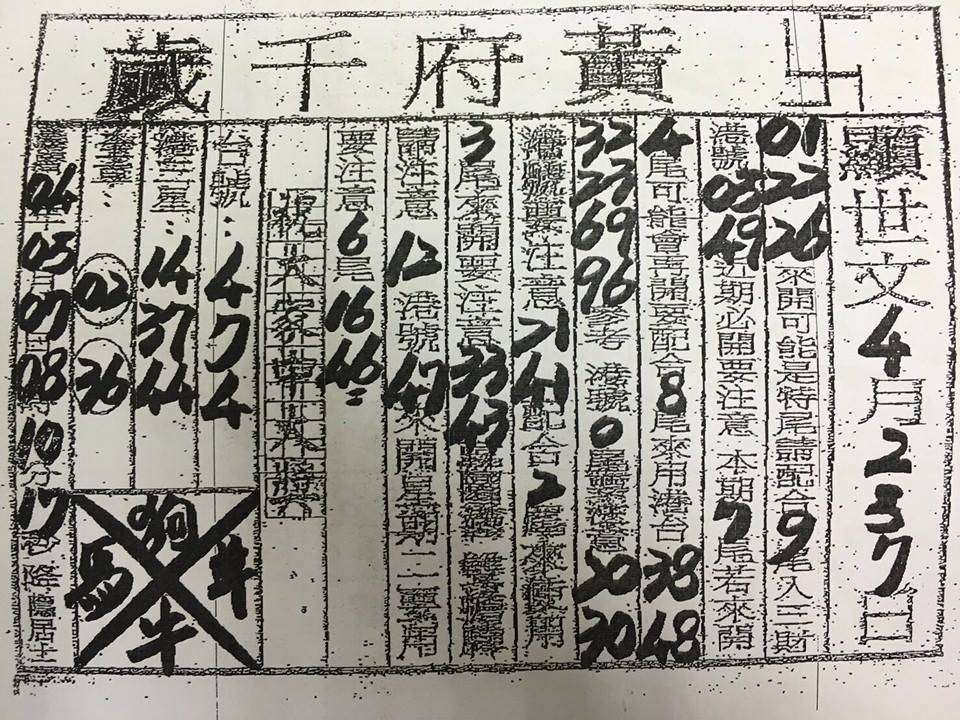 黃府千歲
顯世文4月2 3 7日
01 22 26 來開可能是特尾請配合9尾入三財
港號 03 49 近期必開要注意 本期7尾若來開
4尾可能會再開要配合8尾來用港台 38 48
32 23 69 96 參考 港號0尾要注意 20 30
港號要注意 21 41 配合2尾來
3尾來開要注意 33 43
請注意 12 港號 47 來開星期二二兩用
要注意6尾 16 46
祝大家中大獎
台號：4 7 4
港三星：14 37 44
02 36
04 05月07日08時10分17秒降隱居士
狗
馬 牛
羊